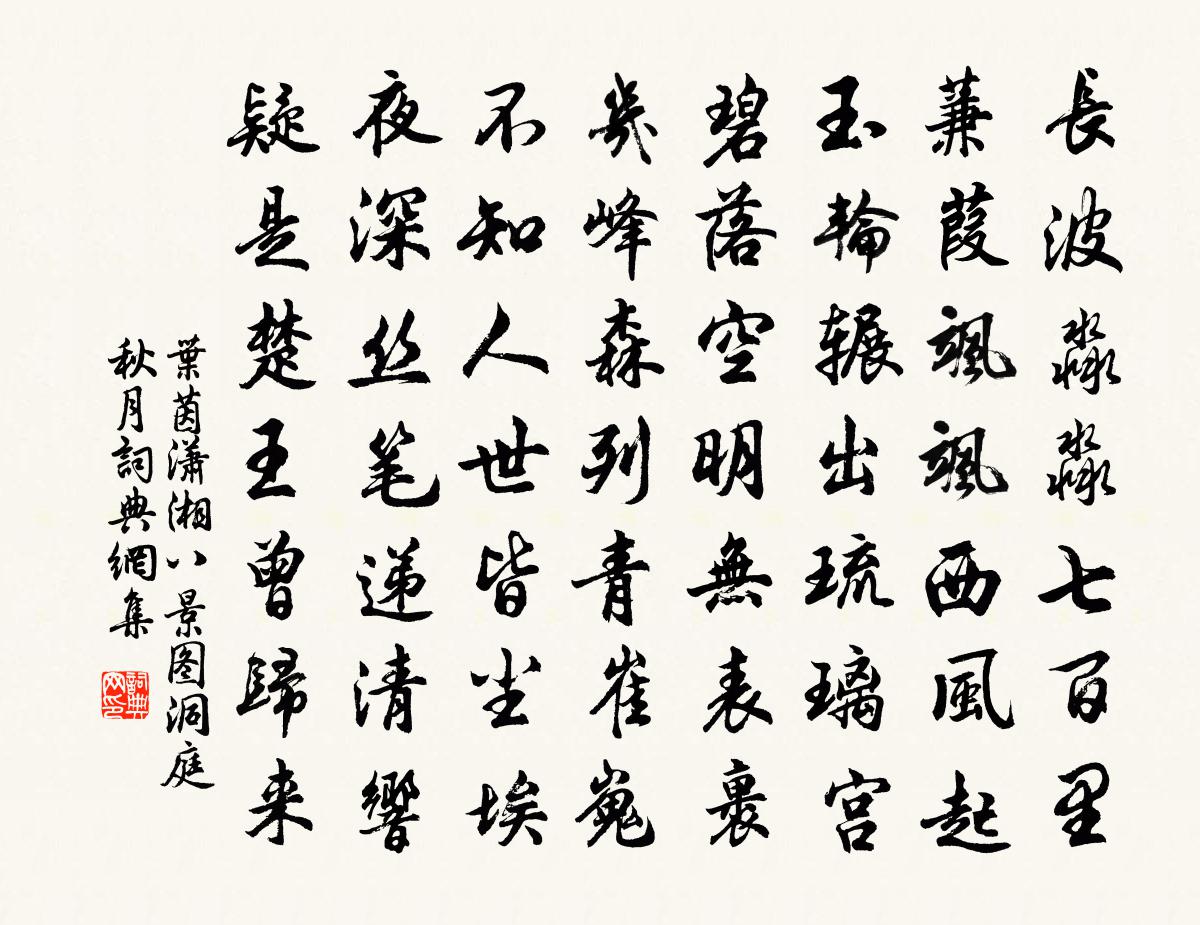 長波淼淼七百里
蒹葭颯颯西風起
玉輪辗出琉璃宫
碧落空明無表裏
幾峰森列青崔嵬
不知人世皆尘埃
夜深丝笔递清響
疑是楚王曾歸来
葉茵瀟湘八景图洞庭
秋月詞典網集
詞典网印